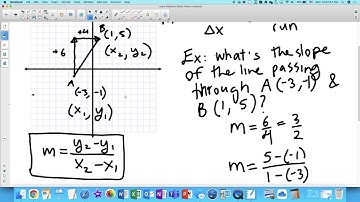 +4
B(1, 5)
+6
(x₂, y₂)
A
(-3, -1)
(x₁, y₁)
m = y₂-y₁ / x₂-x₁
Δx run
Ex: what's the slope
of the line passing
through A(-3,-1) &
B (1, 5)?
m = 6/4 = 3/2
m = 5-(-1) / 1-(-3)